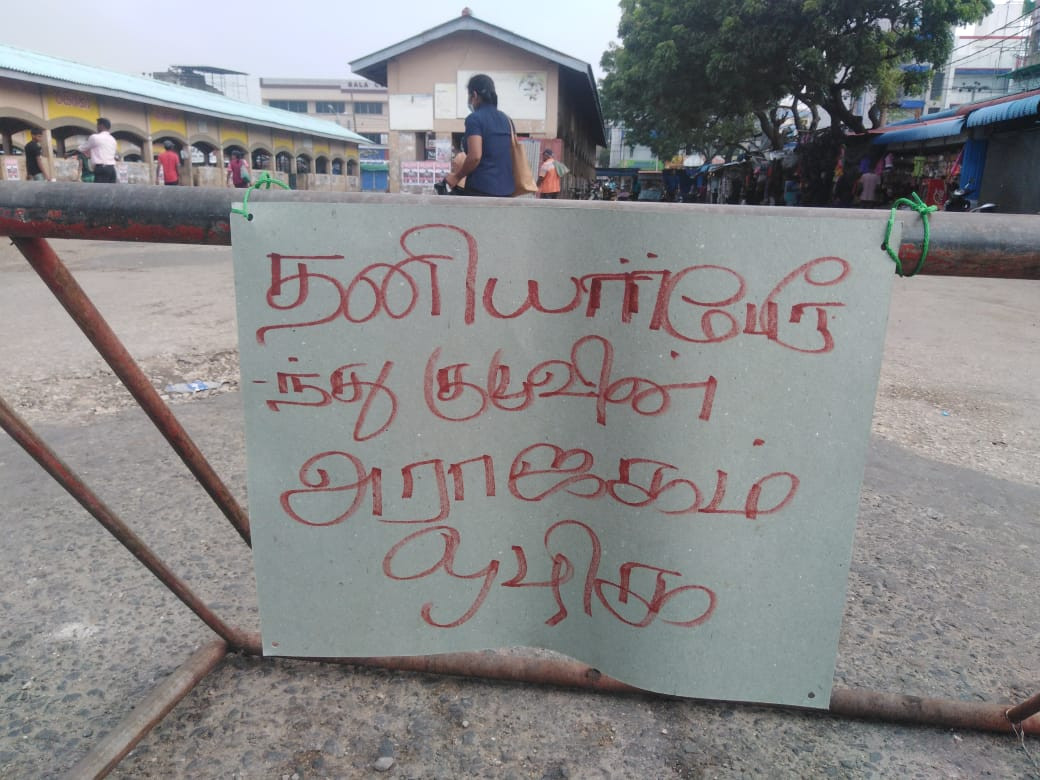 BALA
தனியார்பேரு
-ந்து குழுவின்
அராஜகம்
ஒழிக